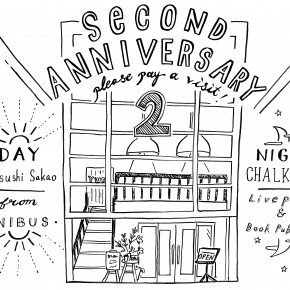 SECOND
ANNIVERSARY
please pay a visit!!
2
DAY
sushi Sakao
from
NIBUS
NIG
CHALK
Livep
&
Book Pub
OPEN